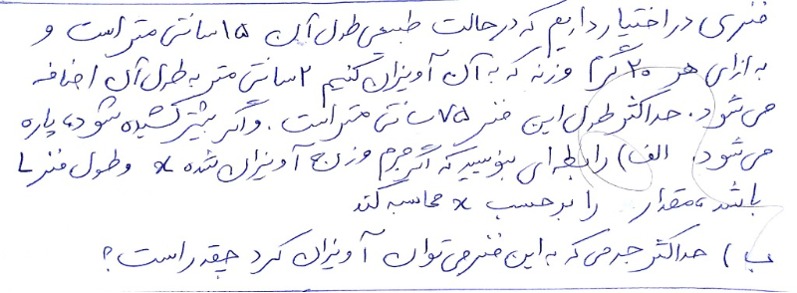 فنری در اختیار داریم که در حالت طبیعی طول آن ۱۵ سانتی متر است و
به ازای هر ۲۰ گرم وزنه که به آن آویزان کنیم ۲ سانتی متر به طول آن اضافه
می شود. حداکثر طول این فنر ۷۵ سانتی متر است. و اگر بیشتر کشیده شود، پاره
می شود. الف) رابطه ای بنویسید که اگر جرم وزنه آویزان شده x و طول فنر L
باشد، مقدار را بر حسب x محاسبه کند
ب) حداکثر جرمی که به این فنر می توان آویزان کرد چقدر است؟